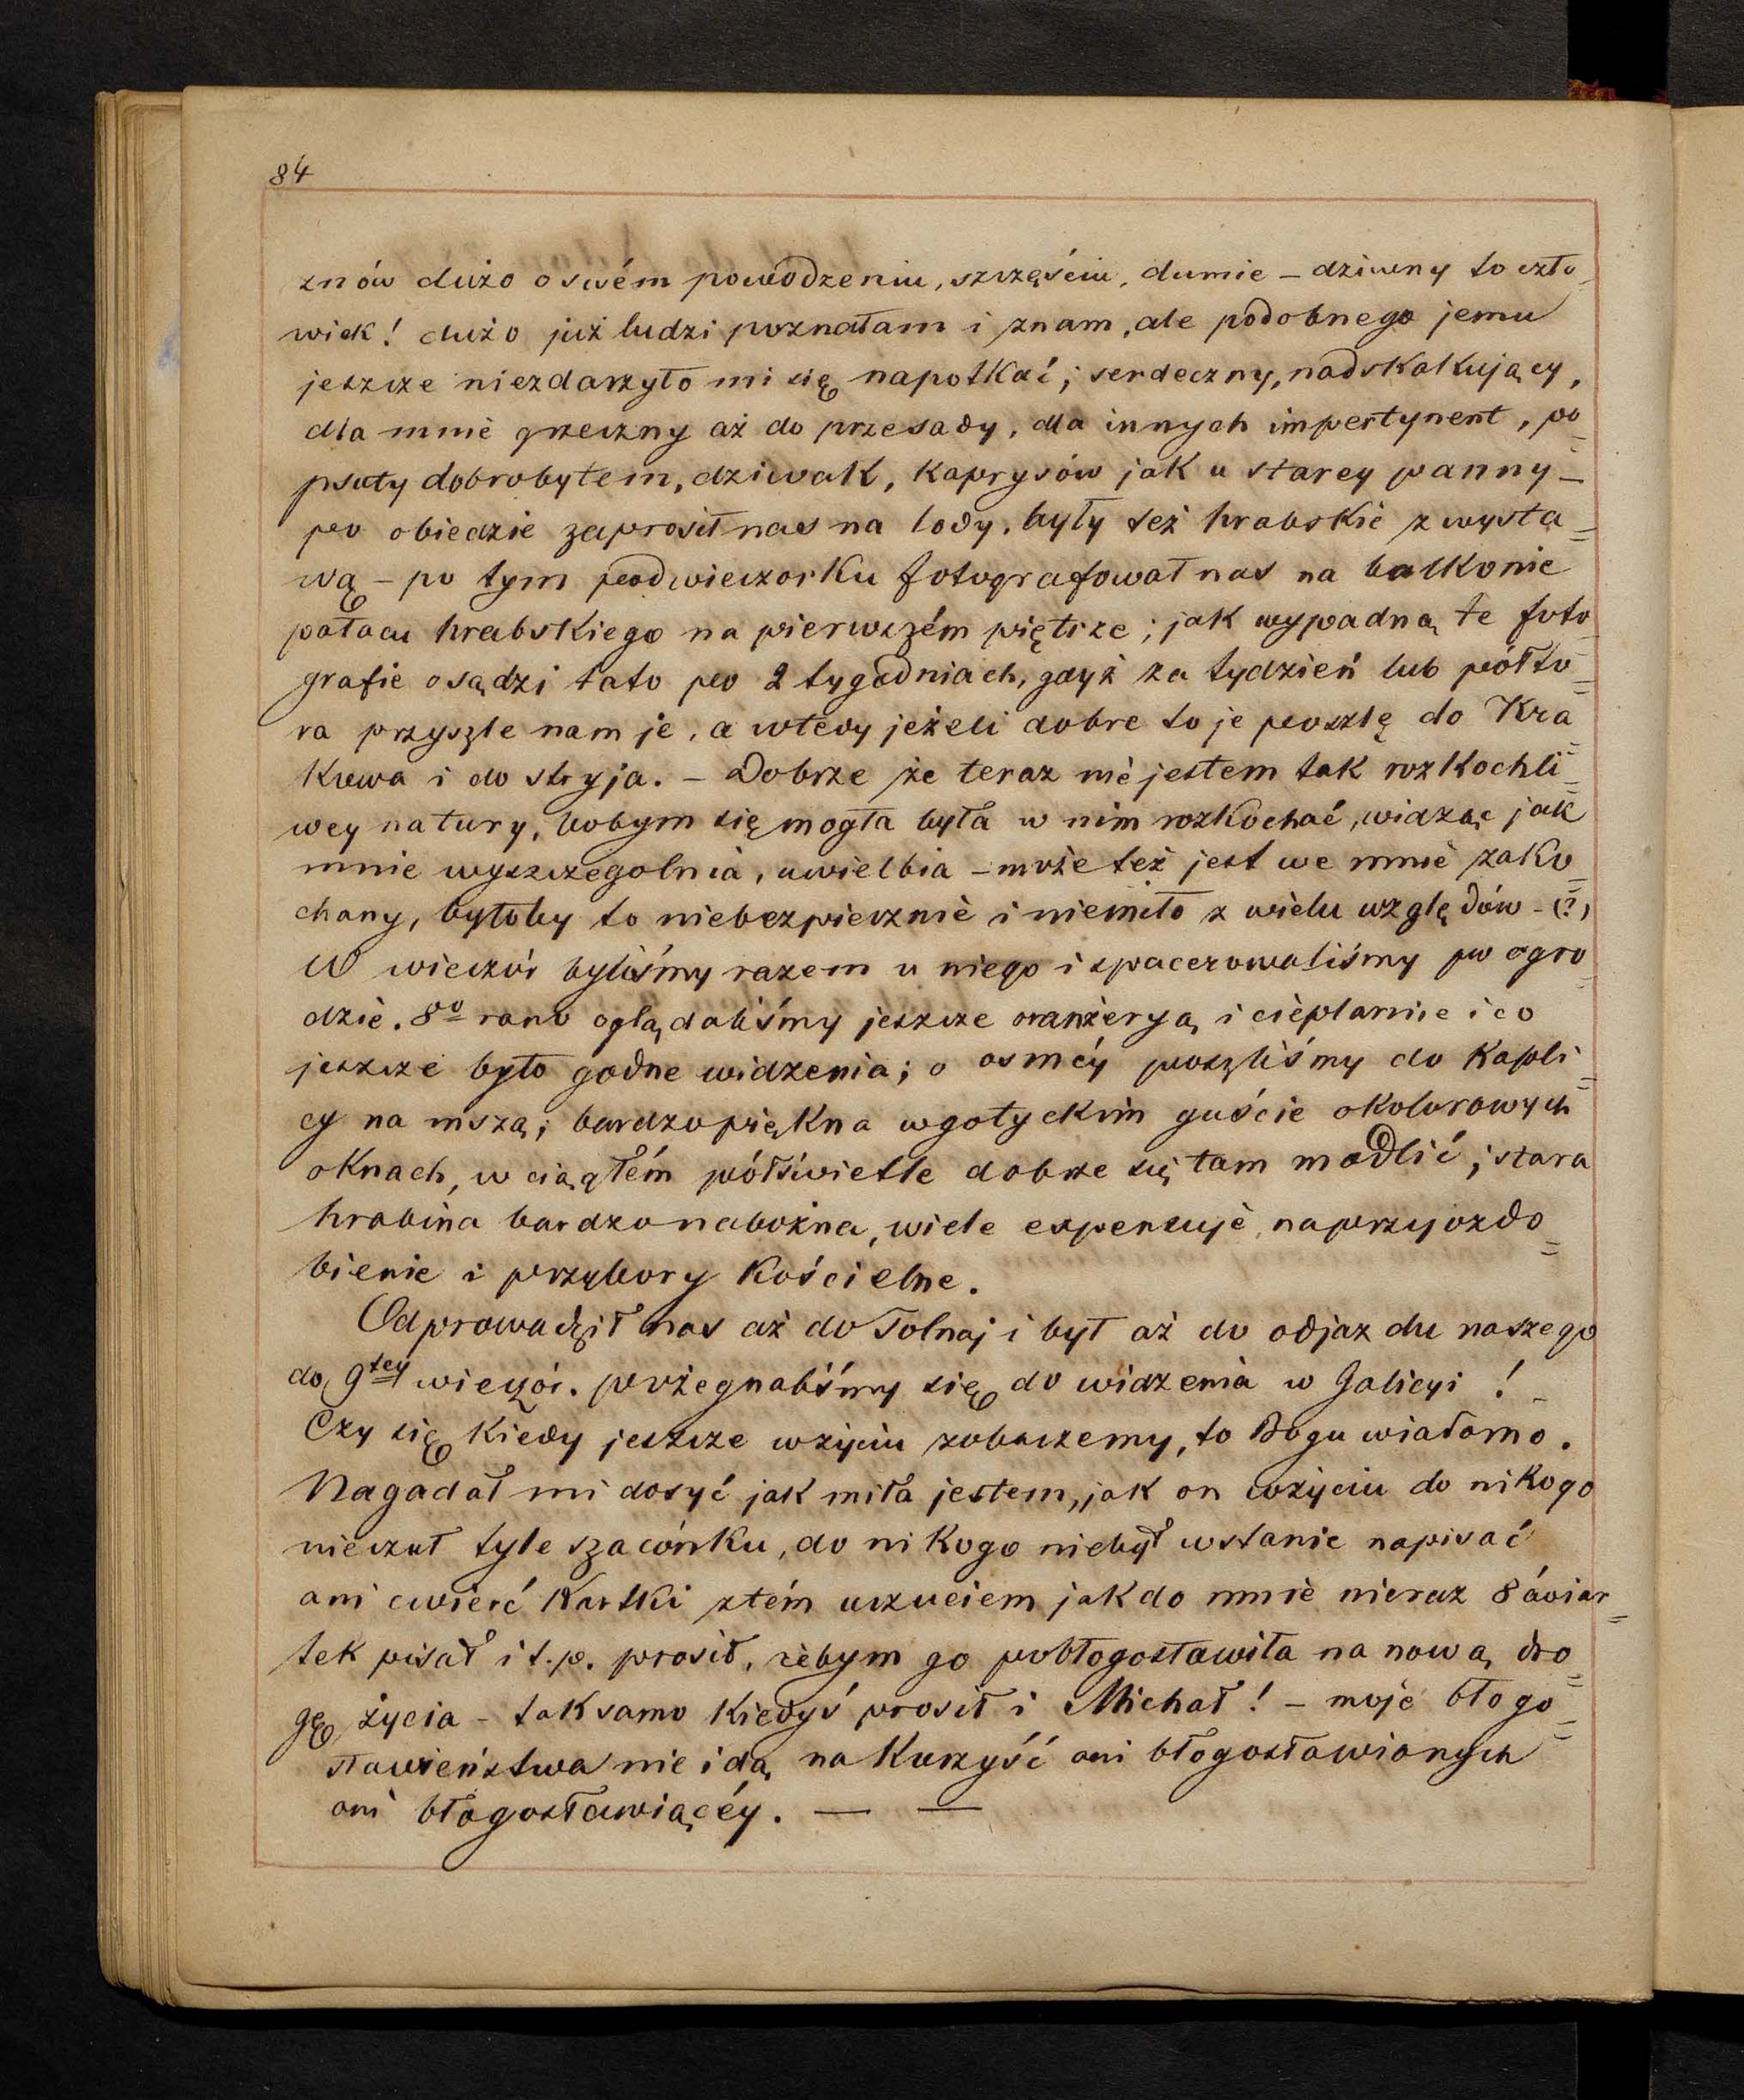 84
znów dużo o swém powodzeniu, szczęściu, dumie – dziwny to czło=
wiek! dużo już ludzi poznałam i znam, ale podobnego jemu
jeszcze niezdarzyło mi się napotkać; serdeczny, nadskakujący,
dla mnie grzeczny aż do przesady, dla innych impertynent, po=
psuty dobrobytem, dziwak, kaprysów jak u starey panny –
po obiedzie zaprosił nas na lody, były też hrabskie z wysta=
wą – po tym podwieczorku fotografował nas na balkonie
pałacu hrabskiego na pierwszém piętrze; jak wypadną te foto
grafie osądzi tato po 2 tygodniach, gdyż za tydzień lub półto=
ra przyszle nam je, a wtedy jeżeli dobre to je poszlę do Kra=
kowa i do stryja. – Dobrze że teraz nie jestem tak rozkochli=
wey natury, bobym się mogła była w nim rozkochać, widząc jak
mnie wyszczególnia, uwielbia – może też jest we mnie zako=
chany, byłoby to niebezpiecznie i niemiło z wielu względów – (?)
W wieczór byliśmy razem u niego i spacerowaliśmy po ogro=
dzie. 8º rano oglądaliśmy jeszcze oranżeryą i cieplarnie i co
jeszcze było godne widzenia; o osméy poszliśmy do kapli=
cy na mszą; bardzo piękna w gotyckim guście o kolorowych
oknach, w ciągłém półświetle dobrze się tam modlić; stara
hrabina bardzo nabożna, wiele expensuje na przyozdo=
bienie i przybory kościelne.
Odprowadził nas aż do Tolnaj i był aż do odjazdu naszego
do 9tey wieczór. pożegnaliśmy się do widzenia w Galicyi!
Czy się kiedy jeszcze w życiu zobaczemy, to Bogu wiadomo.
Nagadał mi dosyć jak miła jestem, jak on w życiu do nikogo
nieczuł tyle szacónku, do nikogo niebył wstanie napisać
ani cwierć kartki z tém uczuciem jak do mnie nieraz 8 ćwiar=
tek pisał i t.p. prosił, żebym go pobłogosławiła na nową dro=
gę życia – tak samo kiedyś prosił i Michał! – moje błogo=
sławieństwa nie idą na kożyść ani błogosławionych
ani błogosławiącéy. — —